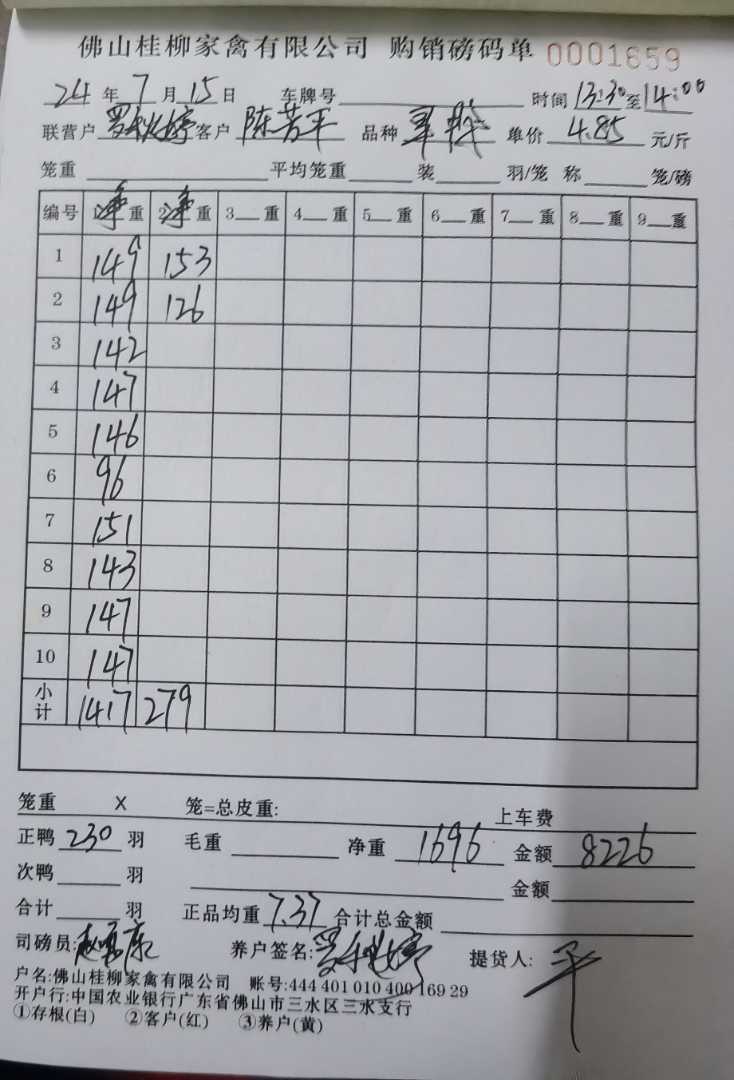 佛山桂柳家禽有限公司 购销磅码单 0001659
24年7月15日 车牌号 时间13:30至14:00
联营户 客户 陈芳平 品种 单价 4.85 元/斤
笼重 平均笼重 装 羽/笼 称 笼/磅
编号 1净重 2净重 3重 4重 5重 6重 7重 8重 9重
1 149 153
2 149 126
3 142
4 147
5 146
6 96
7 151
8 143
9 147
10 147
小计 1417 279
笼重 X 笼=总皮重: 上车费
正鸭 230 羽 毛重 净重 1696 金额 8226
次鸭 羽 金额
合计 羽 正品均重 7.37 合计总金额
司磅员: 养户签名: 提货人: 平
户名:佛山桂柳家禽有限公司 账号:444 401 010 400 169 29
开户行:中国农业银行广东省佛山市三水区三水支行
①存根(白) ②客户(红) ③养户(黄)